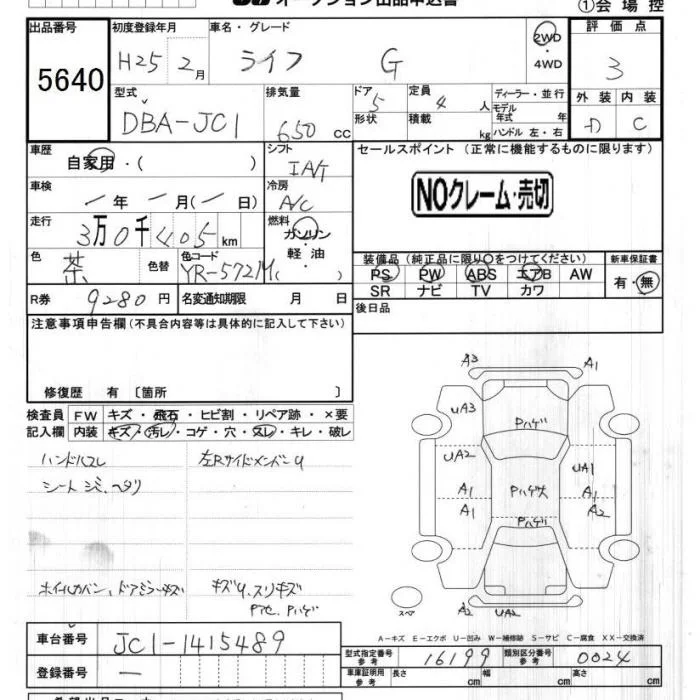 オークション出品申込書
①会場控
出品番号 5640
初度登録年月 H25 2月
車名・グレード ライフ G
2WD・4WD
評価点 3
型式 DBA-JC1
排気量 650 cc
ドア 5 形状
定員 4 人 積載 kg
ディーラー・並行
モデル年式 年
ハンドル 左・右
外装 D 内装 C
車歴 自家用・( )
シフト IAT
セールスポイント (正常に機能するものに限ります)
NOクレーム・売切
車検 年 月( 日)
冷房 A/C
走行 3万0千405km
燃料 ガソリン 軽・油 ( )
色 茶 色替 色コード YR-572M
装備品 (純正品に限り○をつけてください)
新車保証書
PS PW ABS エアB AW
SR ナビ TV カワ
有・無
R券 9280円 名変通知期限 月 日
後日品
注意事項申告欄 (不具合内容等は具体的に記入して下さい)
修復歴 有 〔箇所 〕
検査員記入欄
FW キズ・飛石・ヒビ割・リペア跡・×要
内装 キズ・汚レ・コゲ・穴・スレ・キレ・破レ
ハンドルスレ
左Rサイドメンバーu
シートシミ、ヘタリ
ホイールカバー、ドアミラーキズ
キズu.スリキズ
Pハゲ
A3 A1
uA3 Pハゲ
uA2 uA1
A1 Pハゲ大 A1
A1 Pハゲ A2
スペア A2 uA2
A-キズ E-エクボ U-凹み W-補修跡 S-サビ C-腐食 XX-交換済
車台番号 JC1-1415489
型式指定番号 参考 16199 類別区分番号 参考 0024
登録番号 —
車庫証明用 参考 長さ cm 幅 cm 高さ cm